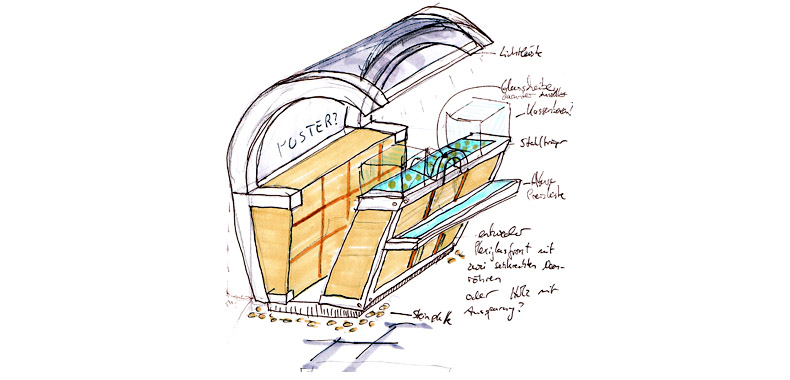 Lichtleiste
Glasscheibe
Kassenboxen?
POSTER?
Stahltrager
Preisleiste
entweder
Plexiglasfront mit
zwei senkrechten
röhren
oder Holz mit
Aussparung?
Steinplatte